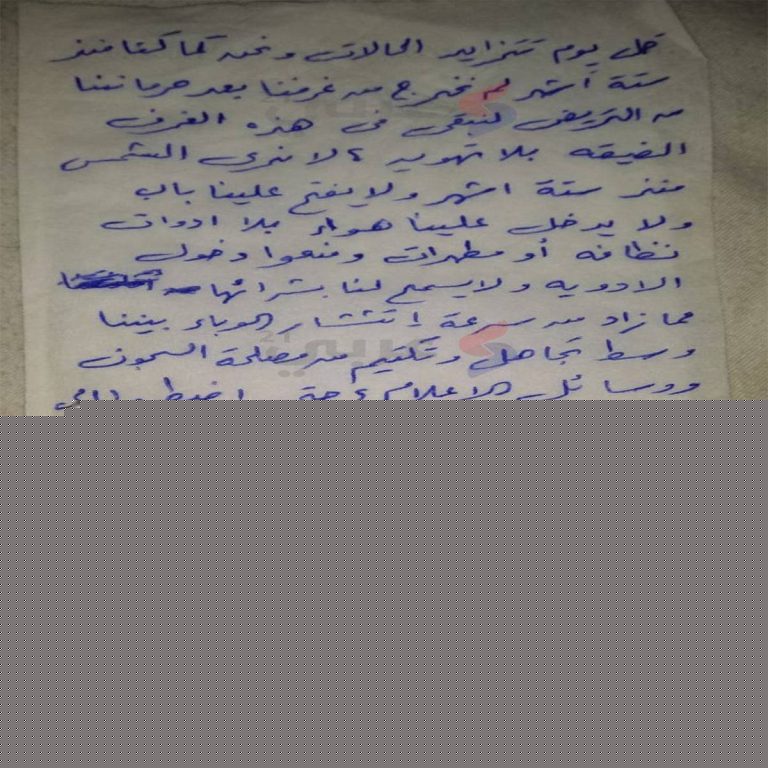 كل يوم تتزايد الحالات ونحن كما كنا منذ
ستة أشهر لم نخرج من غرفنا بعد حرماننا
من التريض لنبقى فى هذه الغرف
الضيقه بلا تهويه لا نرى الشمس
منذ ستة اشهر ولا يفتح علينا باب
ولا يدخل علينا هواء بلا ادوات
نظافه أو مطهرات ومنعوا دخول
الادويه ولا يسمح لنا بشرائها
مما زاد من سرعة إنتشار الوباء بيننا
وسط تجاهل وتكتيم من مصلحة السجون
ووسائل الاعلام